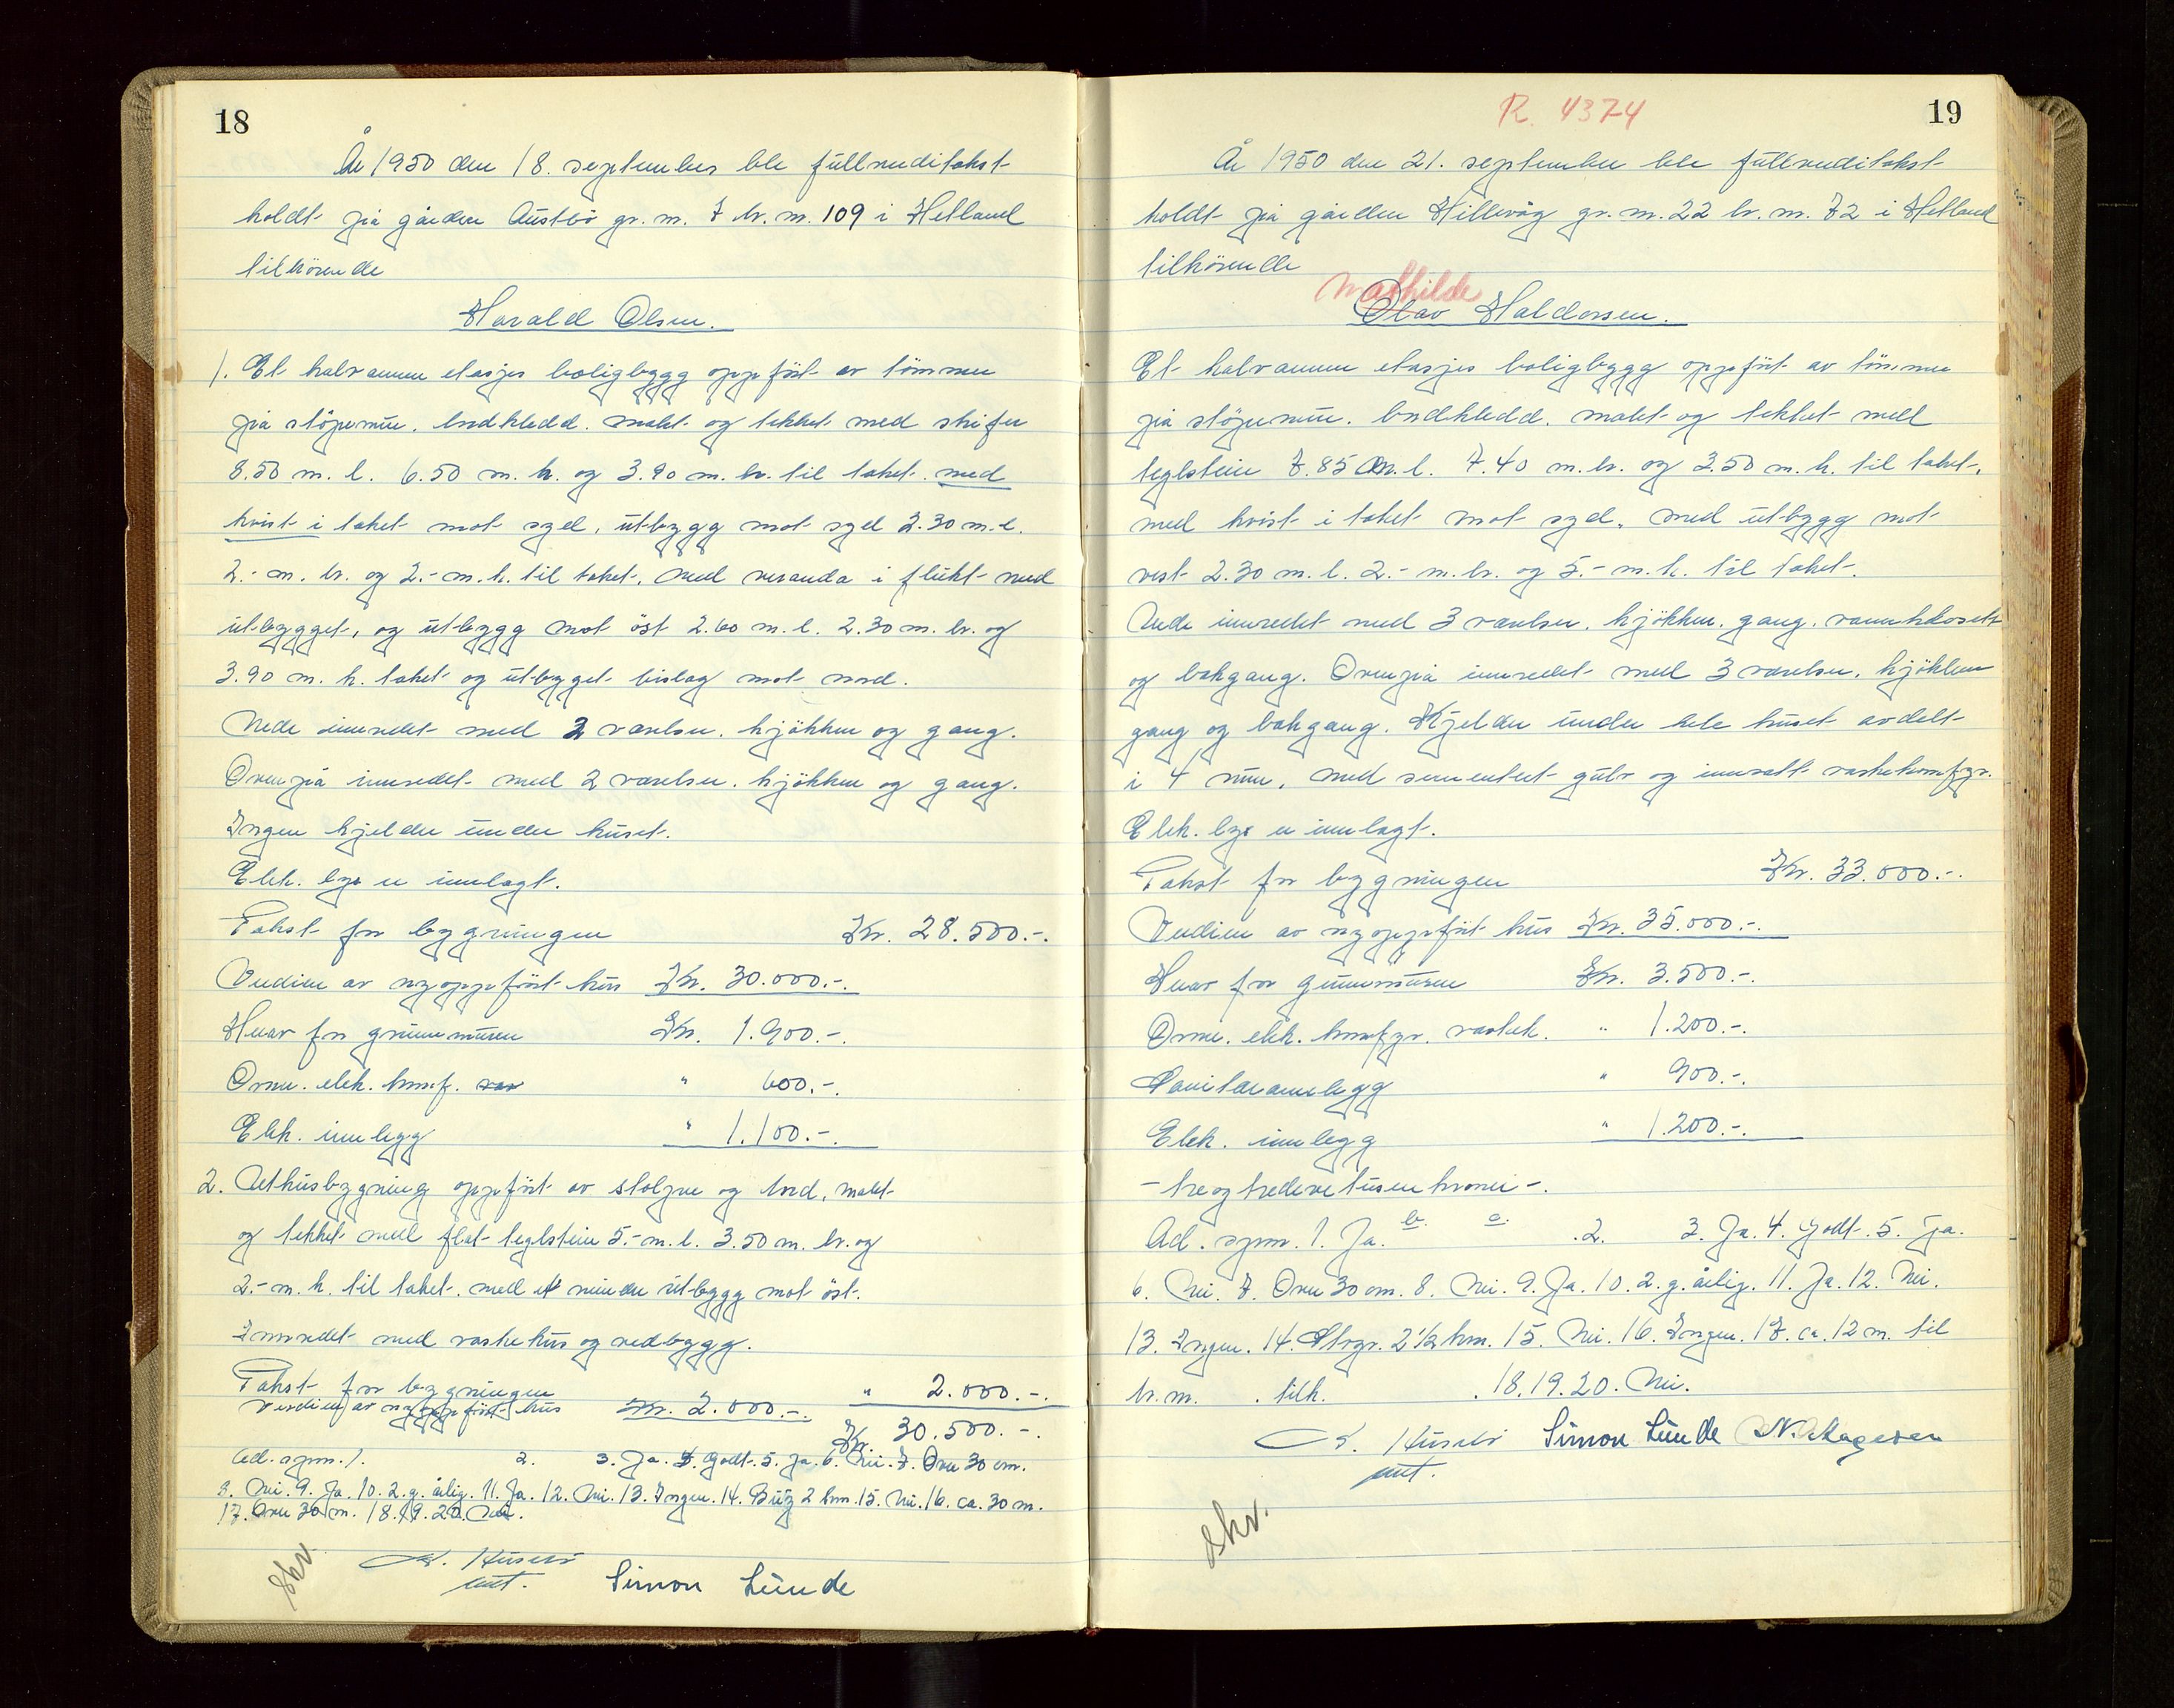 18
År 1950 den 18. september ble fullverditakst
holdt på gården Austbö gr. nr. 7 br. nr. 109 i Hetland
tilhörende
Harald Olsen.
1. Et halvannen etasjes boligbygg oppfört av tömmer
på stöpemur. bordkledd. malt og tekket med skifer
8.50 m. l. 6.50 m. h. og 3.90 m. br. til taket. med
kvist i taket mot syd, utbygg mot syd 2.30 m. l.
2.- m. br. og 2.- m. h. til taket, med veranda i flukt med
utbygget, og utbygg mot öst 2.60 m. l. 2.30 m. br. og
3.90 m. h. taket og utbyget bislag mot nord.
Nede innredet med 2 værelser. kjökken og gang.
Ovenpå innredet med 2 værelser. kjökken og gang.
Ingen kjelder under huset.
Elek. lys er innlagt.
Takst for bygningen Kr. 28.500.-.
Verdien av nyoppfört hus Kr. 30.000.-.
Herav for grunnmuren Kr. 1.900.-.
Ovner. elek. komf. vas " 600.-.
Elek. innlegg " 1.100.-.
2. Uthusbygning oppfört av stolper og bord, malt
og tekket med flat teglstein 5.- m. l. 3.50 m. br. og
2.- m. h. til taket. med et mindre utbygg mot öst.
Innredet med vaskehus og vedbygg.
Takst for bygningen " 2.000.-.
Verdien av nyoppfört hus Kr. 2.000.-.
Kr. 30.500.-.
Ad. spm. 1. 2. 3. Ja. 4. Godt. 5. Ja. 6. Nei. 7. Over 30 cm.
8. Nei. 9. Ja. 10. 2. g. årlig. 11. Ja. 12. Nei. 13. Ingen. 14. By 2 km. 15. Nei. 16. ca. 30 m.
17. Over 30 m. 18. 19. 20. Nei.
Skr.
S. Husebö
Simon Lunde
19
R. 4374
År 1950 den 21. september ble fullverditakst
holdt på gården Hillevåg gr. nr. 22 br. nr. 72 i Hetland
tilhörende
Mathilde
Olav Haldorsen.
Et halvannen etasjes boligbygg oppfört av tömmer
på stöpemur. bordkledd. malt og tekket med
teglstein 7.85 m. l. 7.40 m. br. og 3.50 m. h. til taket.
med kvist i taket mot syd, med utbygg mot
vest 2.30 m. l. 2.- m. br. og 5.- m. h. til taket.
Nede innredet med 3 værelser. kjökken. gang. vannklosett
og bakgang. Ovenpå innredet med 3 værelser. kjökken
gang og bakgang. Kjelder under hele huset avdelt
i 4 rum, med sementert gulv og innsatt vaskekomfyr.
Elek. lys er innlagt.
Takst for bygningen Kr. 33.000.-.
Verdien av nyoppfört hus Kr. 35.000.-.
Herav for grunnmuren Kr. 3.500.-.
Ovner. elek. komfyr. vaskek. " 1.200.-.
Sanitæranlegg " 900.-.
Elek. innlegg " 1.200.-.
- treogtredevetusenkroner -.
Ad. spm. 1. Ja. b. c. 2. 3. Ja. 4. Godt. 5. Ja.
6. Nei. 7. Over 30 cm. 8. Nei. 9. Ja. 10. 2. g. årlig. 11. Ja. 12. Nei.
13. Ingen. 14. Stvgr. 2 1/2 km. 15. Nei. 16. Ingen. 17. ca. 12 m. til
br. nr. . tilh. . 18. 19. 20. Nei.
S. Husebö Simon Lunde
Skr.